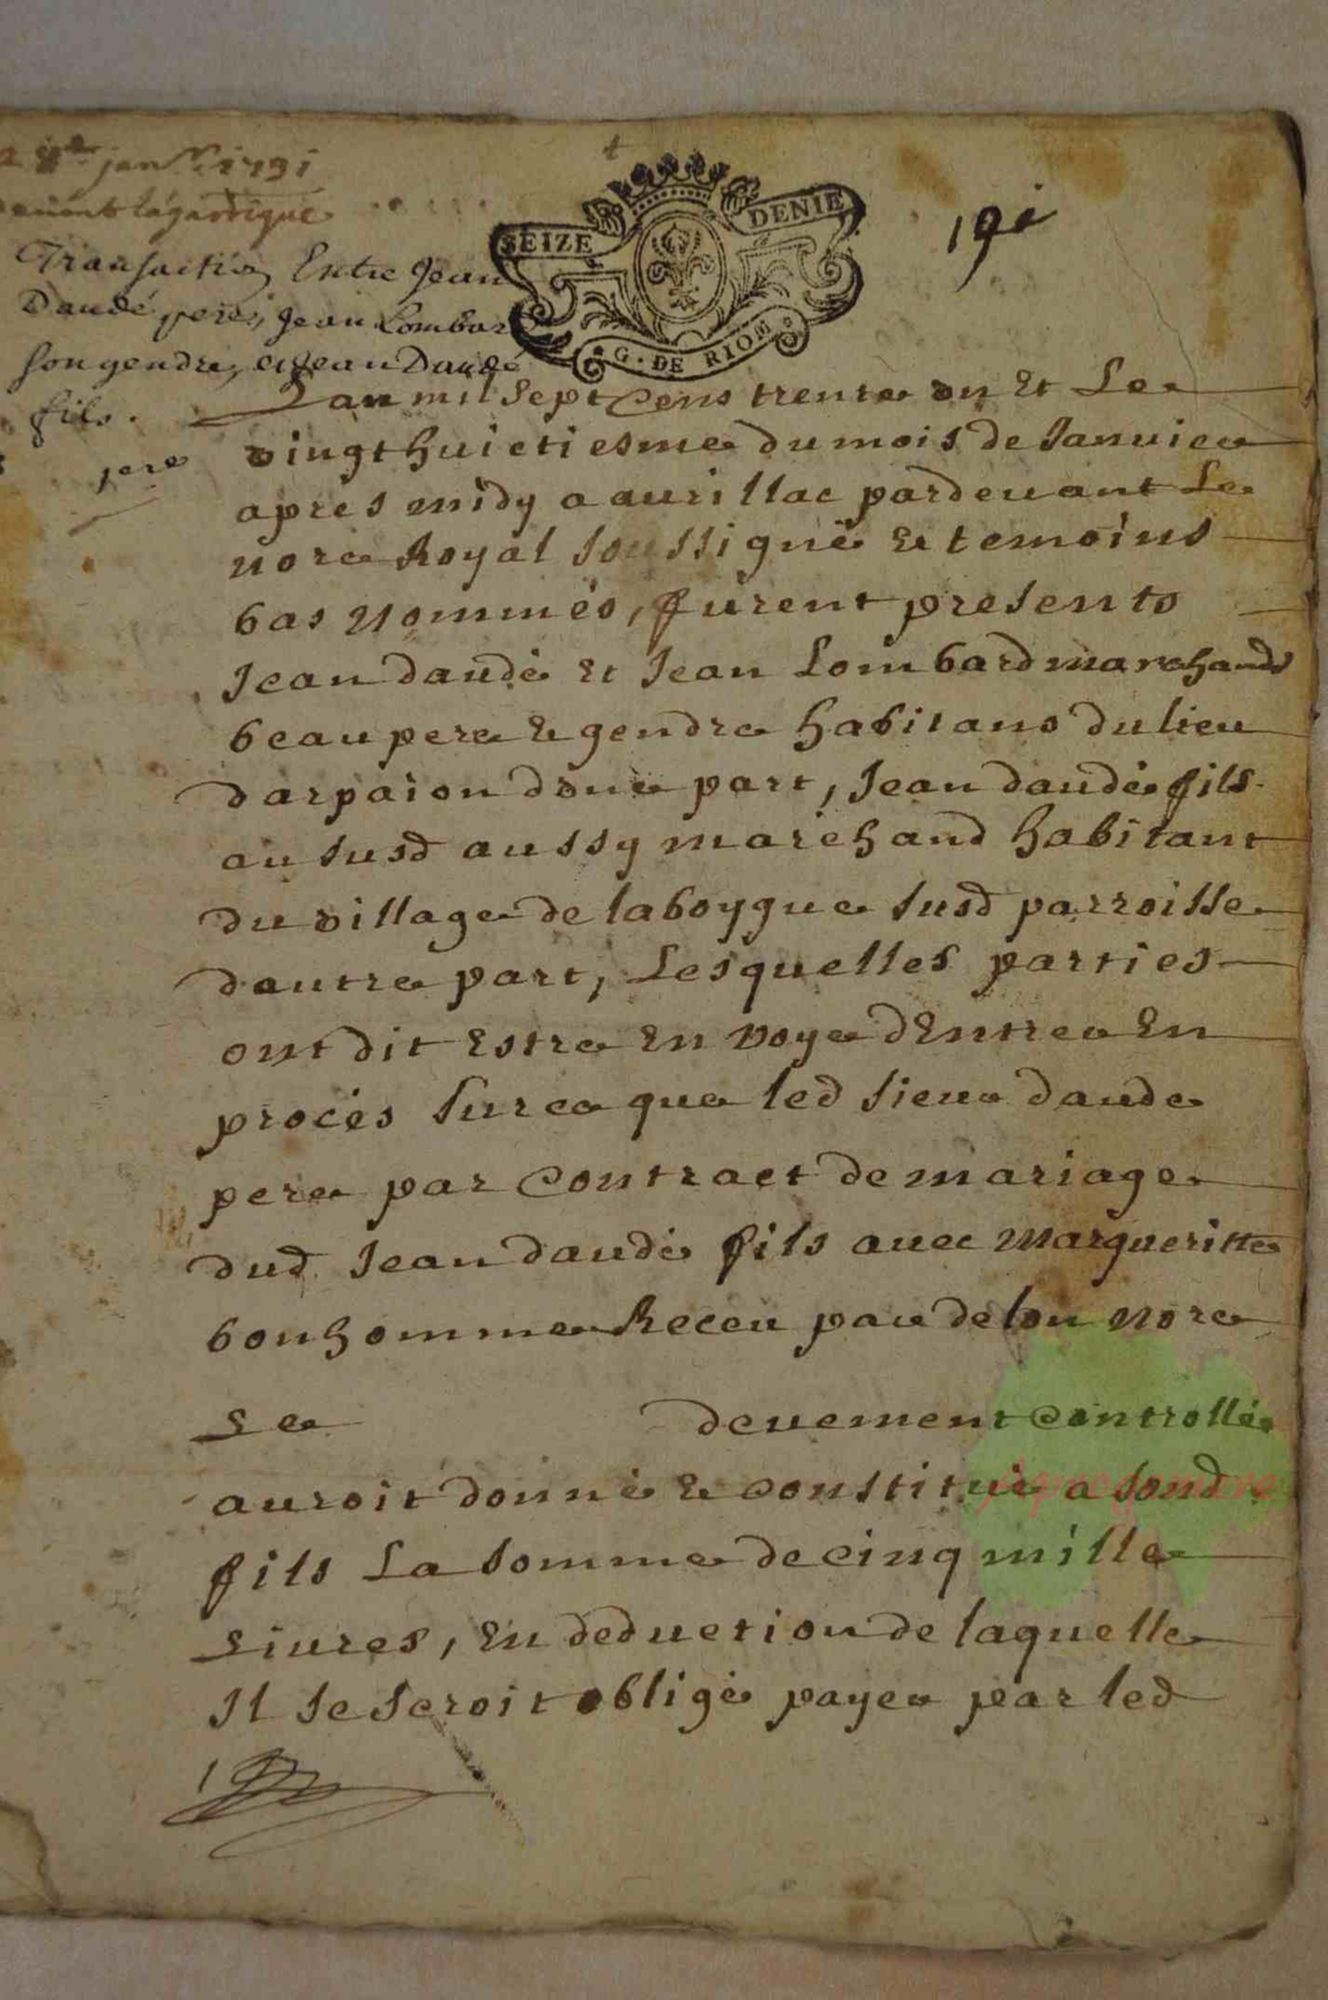 janvr 1731
lagarrigue
Transaction Entre Jean
Daudé pere, Jean Lombar
son gendre, et Jean Daudé
fils.
1ere
SEIZE DENIE
G. DE RIOM
191
Lan mil sept cens trente un et Le
vingt huictiesme du mois de Januier
apres midy a aurillac pardeuant Le
nore Royal soussigné et temoins
bas nommés, furent presents
Jean daudé et Jean Lombard marchands
beaupere et gendre habitans du lieu
darpaion dune part, Jean daudé fils
au susd aussy marchand habitant
du village de laboygue susd parroisse
dautre part, Lesquelles parties
ont dit Estre En voye dEntrer En
procés sur ce que led sieur daude
pere par contract de mariage
dud Jean daudé fils auec Margueritte
bonhomme Receu par delou nore
Le devement controllé
auroit donné et constitué a sond
fils La somme de cinq mille
Liures, En deduction de laquelle
Il se seroit obligé payer par led